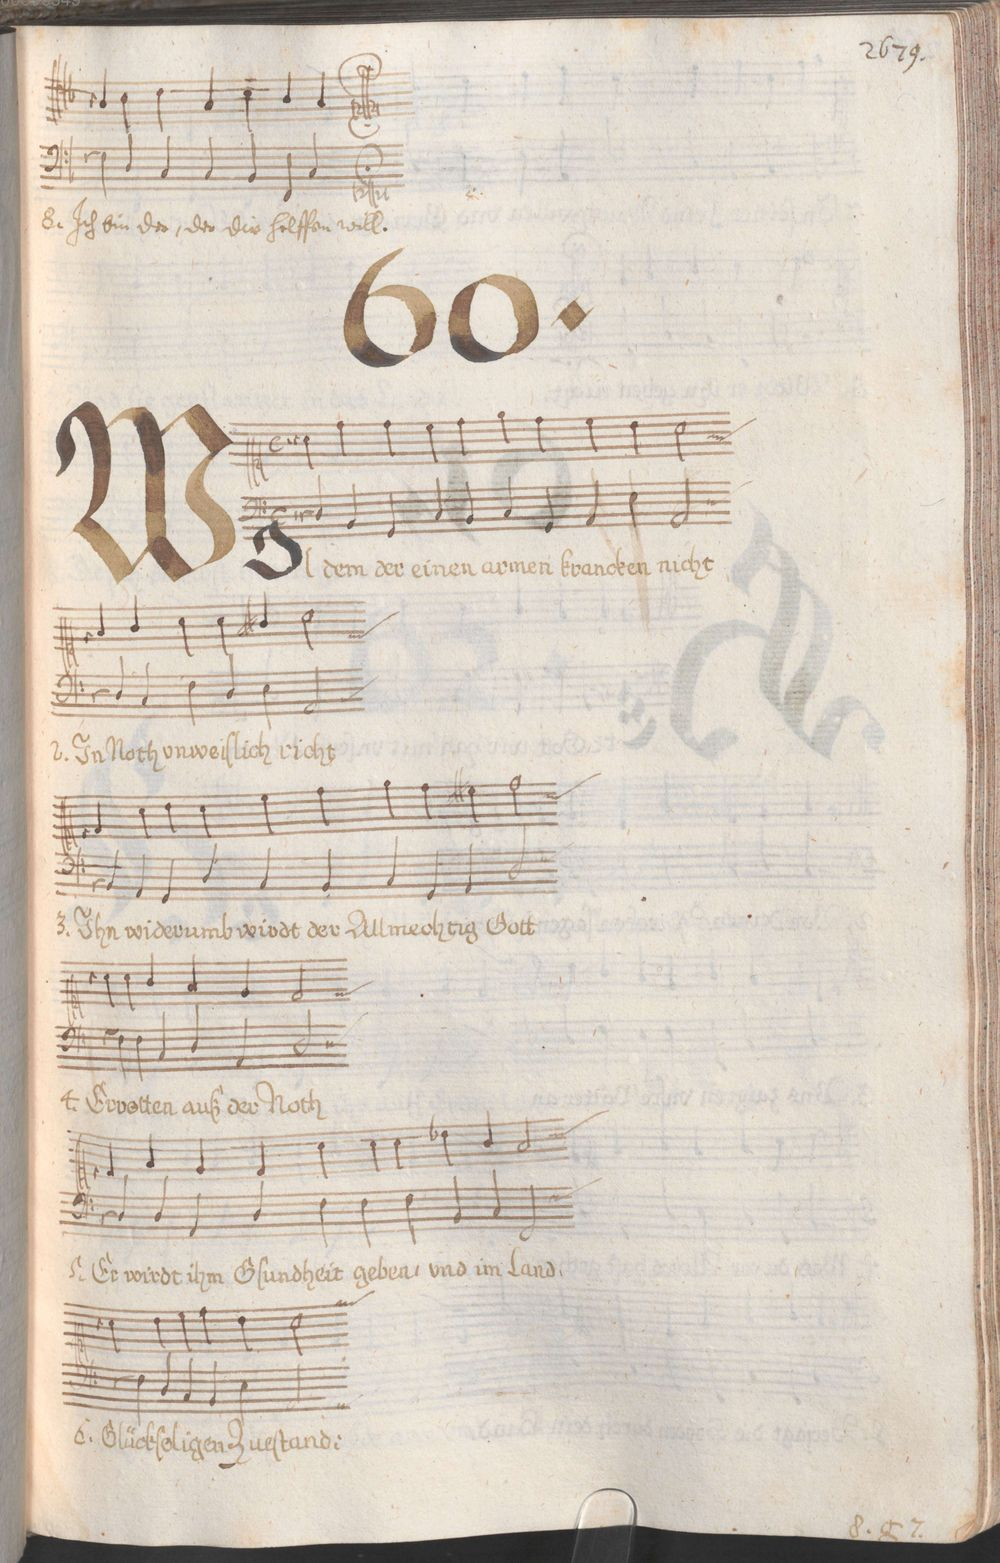 2679.
8. Ich bin der, der dir helffen will.
60.
Wol dem der einen armen krancken nicht
2. In Noth vnweißlich richt
3. Ihn widerumb wirdt der Allmechtig Gott
4. Erretten auß der Noth
5. Er wirdt ihm Gsundheit geben, vnd im Land.
6. Glückseligen Zuestand: